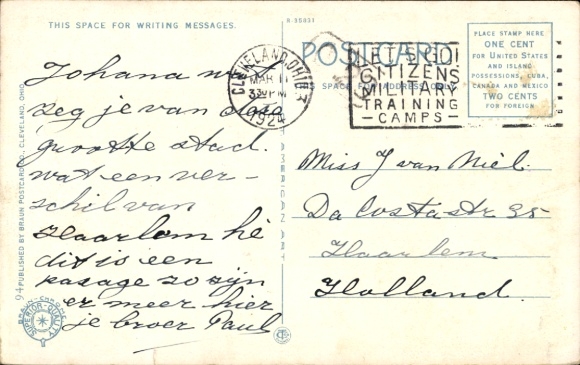 THIS SPACE FOR WRITING MESSAGES.
R-35031
Johana wat
zeg je van deze
grootte stad.
wat een ver-
schil van
Haarlem hè
dit is een
pasage zo zijn
er meer hier
je broer Paul
94 PUBLISHED BY BRAUN POSTCARD CO., CLEVELAND, OHIO.
SUPERIOR-QUALITY
CLEVELAND, OHIO
MAR 11
330PM
1924
POSTCARD
THIS SPACE FOR ADDRESS ONLY
LET'S GO!
CITIZENS
MILITARY
TRAINING
- CAMPS -
PLACE STAMP HERE
ONE CENT
FOR UNITED STATES
AND ISLAND
POSSESSIONS, CUBA,
CANADA AND MEXICO
TWO CENTS
FOR FOREIGN
Miss J van Niel.
Da Costastr 35
Haarlem
Holland.